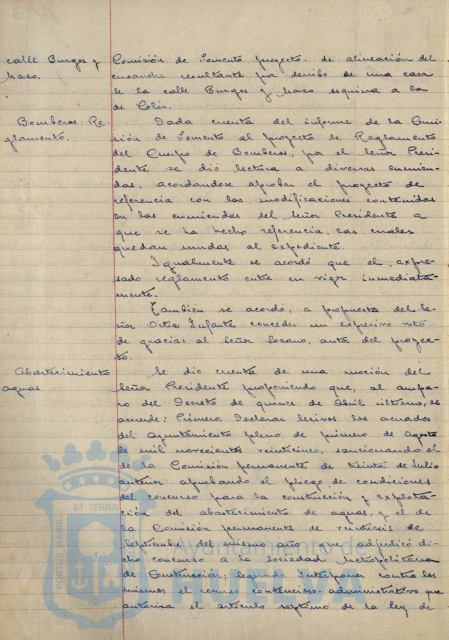 calle Burgos y
Mazo.
Comisión de Fomento proyecto de alineación del
ensanche resultante por derribo de una casa
de la calle Burgos y Mazo esquina a la
de Colón.
Bomberos: Re-
glamento.
Dada cuenta del informe de la Comi-
sión de Fomento al proyecto de Reglamento
del Cuerpo de Bomberos, por el Señor Presi-
dente se dió lectura a diversas enmien-
das, acordandose aprobar el proyecto de
referencia con las modificaciones contenidas
en las enmiendas del Señor Presidente a
que se ha hecho referencia, las cuales
quedan unidas al expediente.
Igualmente se acordó que el expre-
sado reglamento entre en vigor inmediata-
mente.
También se acordó, a propuesta del Se-
ñor Ortiz Infante conceder un expresivo voto
de gracias al Señor Lozano, autor del proyec-
to.
Abastecimiento
aguas
Se dió cuenta de una moción del
Señor Presidente proponiendo que, al ampa-
ro del Decreto de quince de Abril último, se
acuerde: Primero. Declarar lesivos los acuerdos
del Ayuntamiento pleno de primero de Agosto
de mil novecientos veinticinco, sancionando el
de la Comisión permanente de treinta de Julio
anterior aprobando el pliego de condiciones
del concurso para la construcción y explota-
ción del abastecimiento de aguas, y el de
la Comisión permanente de veintiseis de
Septiembre del mismo año que adjudicó di-
cho concurso a la Sociedad Metropolitana
de Construcción; Segundo Interponer contra los
mismos el recurso contencioso-administrativo que
autoriza el artículo septimo de la ley de
Ayuntamiento de